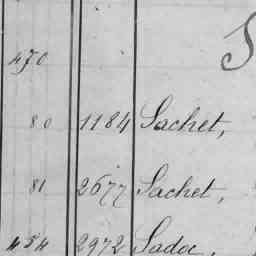 S
470
80 1184 Sachet,
81 2677 Sachet,
484 2972 Sadoc,